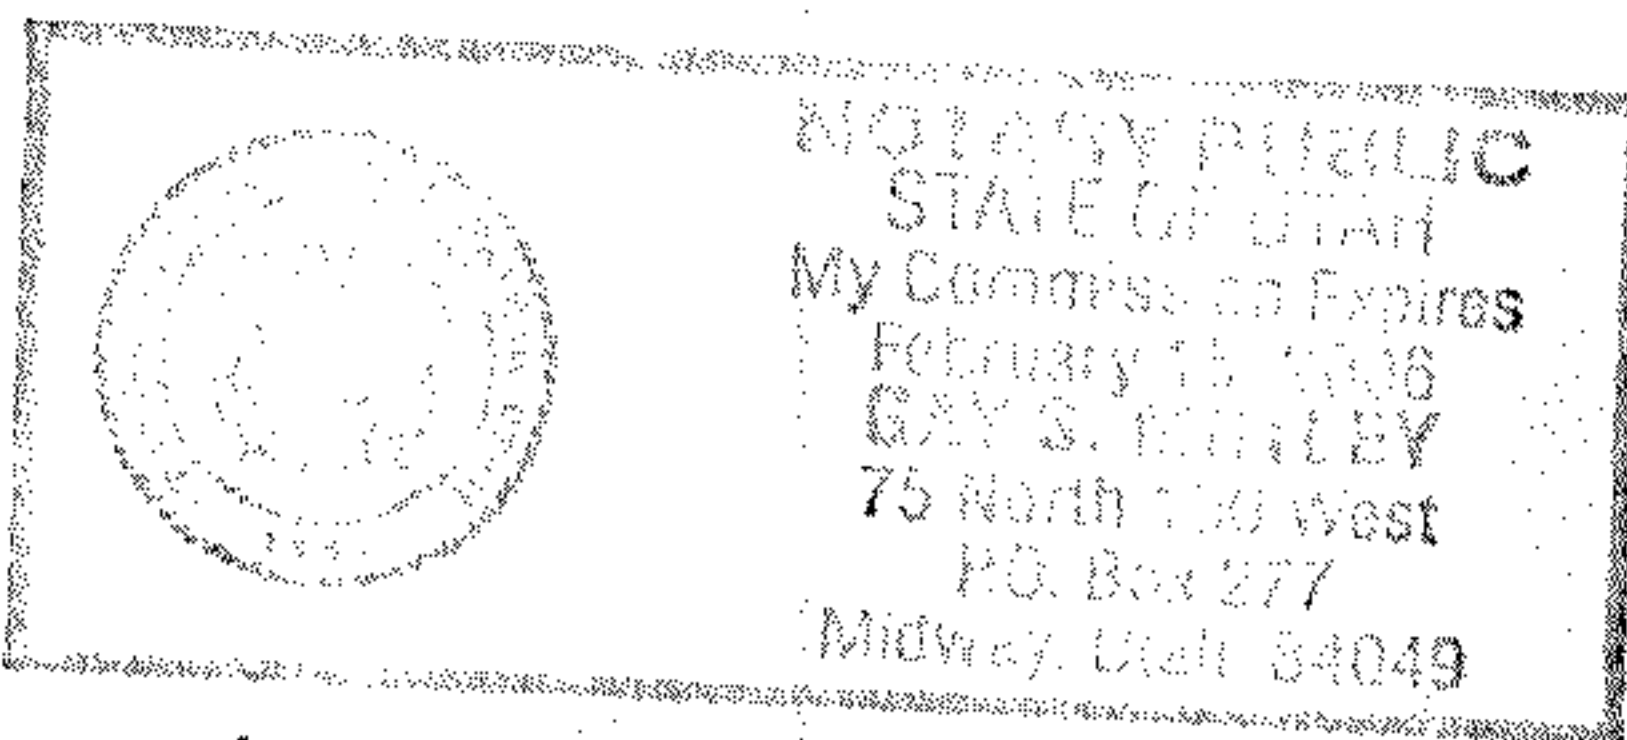 NOTARY PUBLIC
STATE OF UTAH
My Commission Expires
February 15, 1996
GAY S.
75 North West
P.O. Box 277
Midway, Utah 84049